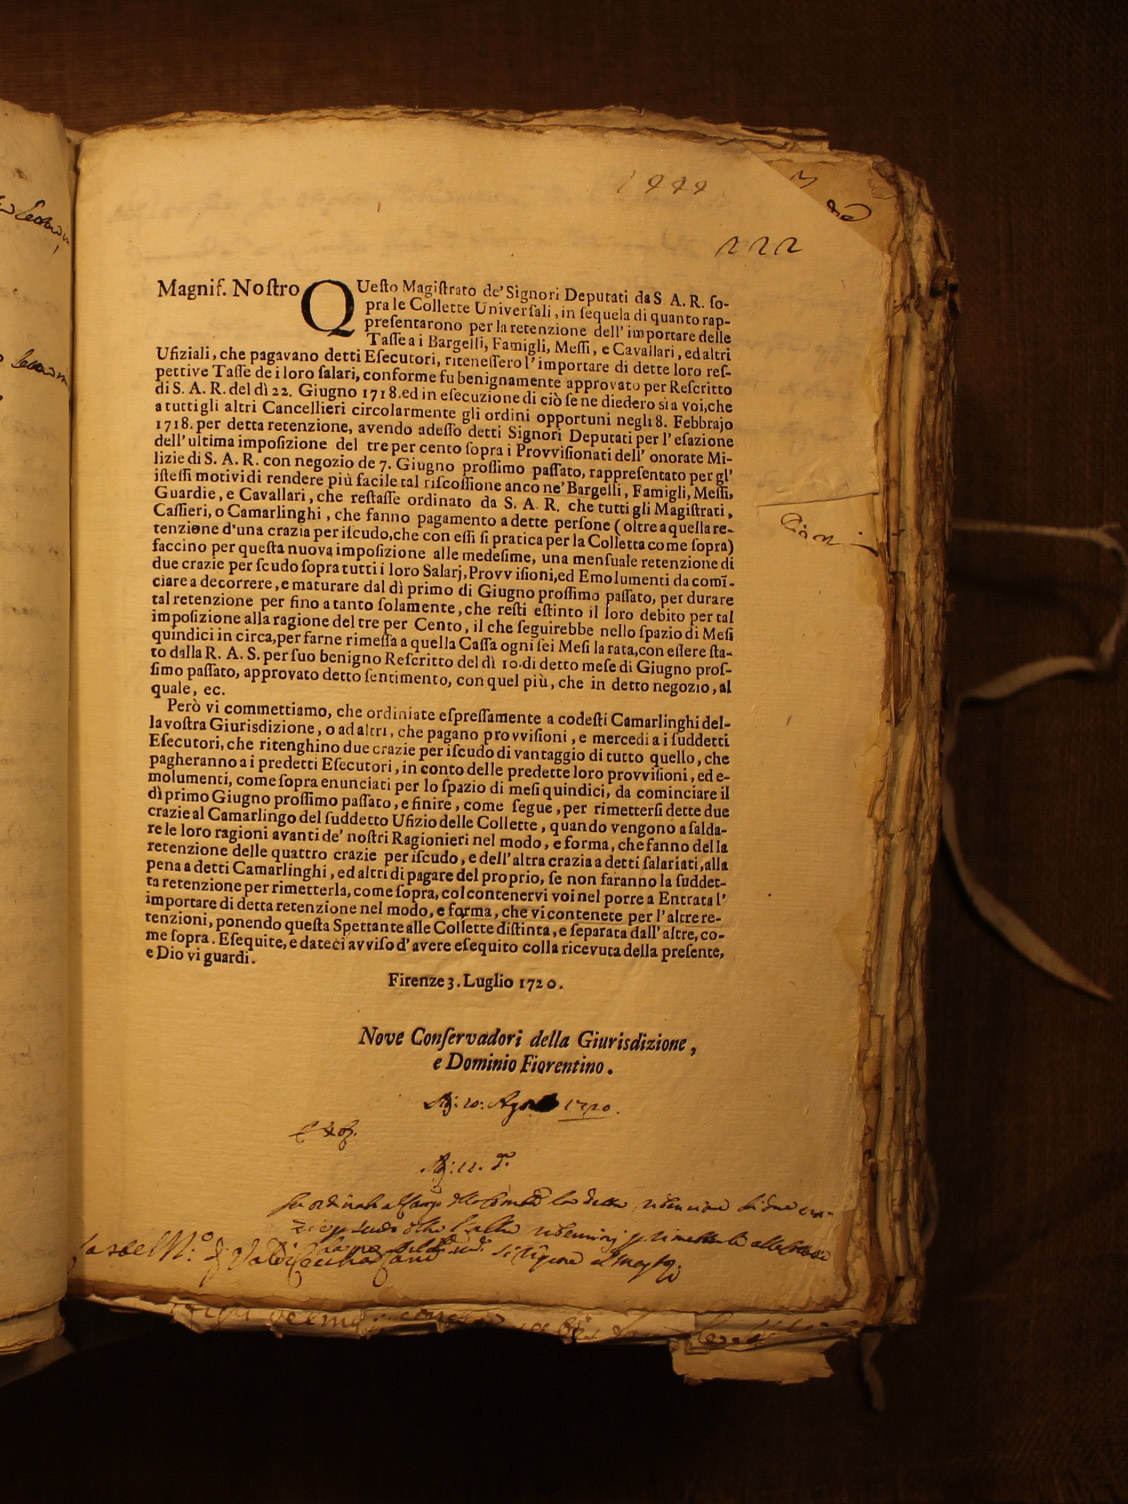 222
Magnif. Noſtro QUeſto Magiſtrato de' Signori Deputati da S. A. R. ſo-
pra le Collette Univerſali, in ſequela di quanto rap-
preſentarono per la retenzione dell' importare delle
Taſſe a i Bargelli, Famigli, Meſſi, e Cavallari, ed altri
Ufiziali, che pagavano detti Eſecutori, riteneſſero l'importare di dette loro reſ-
pettive Taſſe de i loro ſalari, conforme fu benignamente approvato per Reſcritto
di S. A. R. del dì 22. Giugno 1718. ed in eſecuzione di ciò ſe ne diedero sì a voi, che
a tutti gli altri Cancellieri circolarmente gli ordini opportuni negli 8. Febbrajo
1718. per detta retenzione, avendo adeſſo detti Signori Deputati per l'eſazione
dell'ultima impoſizione del tre per cento ſopra i Provviſionati dell' onorate Mi-
lizie di S. A. R. con negozio de 7. Giugno proſſimo paſſato, rappreſentato per gl'
iſteſſi motivi di rendere più facile tal riſcoſſione anco ne' Bargelli, Famigli, Meſſi,
Guardie, e Cavallari, che reſtaſſe ordinato da S. A. R. che tutti gli Magiſtrati,
Caſſieri, o Camarlinghi, che fanno pagamento a dette perſone (oltre a quella re-
tenzione d'una crazia per iſcudo, che con eſſi ſi pratica per la Colletta come ſopra)
faccino per queſta nuova impoſizione alle medeſime, una menſuale retenzione di
due crazie per ſcudo ſopra tutti i loro Salarj, Provviſioni, ed Emolumenti da comĩ-
ciare a decorrere, e maturare dal dì primo di Giugno proſſimo paſſato, per durare
tal retenzione per fino a tanto ſolamente, che reſti eſtinto il loro debito per tal
impoſizione alla ragione del tre per Cento, il che ſeguirebbe nello ſpazio di Meſi
quindici in circa, per farne rimeſſa a quella Caſſa ogni ſei Meſi la rata, con eſſere ſta-
to dalla R. A. S. per ſuo benigno Reſcritto del dì 10. di detto meſe di Giugno proſ-
ſimo paſſato, approvato detto ſentimento, con quel più, che in detto negozio, al
quale, ec.
Però vi commettiamo, che ordiniate eſpreſſamente a codeſti Camarlinghi del-
la voſtra Giurisdizione, o ad altri, che pagano provviſioni, e mercedi a i ſuddetti
Eſecutori, che ritenghino due crazie per iſcudo di vantaggio di tutto quello, che
pagheranno a i predetti Eſecutori, in conto delle predette loro provviſioni, ed e-
molumenti, come ſopra enunciati per lo ſpazio di meſi quindici, da cominciare il
dì primo Giugno proſſimo paſſato, e finire, come ſegue, per rimetterſi dette due
crazie al Camarlingo del ſuddetto Ufizio delle Collette, quando vengono a ſalda-
re le loro ragioni avanti de' noſtri Ragionieri nel modo, e forma, che fanno della
retenzione delle quattro crazie per iſcudo, e dell'altra crazia a detti ſalariati, alla
pena a detti Camarlinghi, ed altri di pagare del proprio, ſe non faranno la ſuddet-
ta retenzione per rimetterla, come ſopra, col contenervi voi nel porre a Entrata l'
importare di detta retenzione nel modo, e forma, che vi contenete per l'altre re-
tenzioni, ponendo queſta Spettante alle Collette diſtinta, e ſeparata dall'altre, co-
me ſopra. Eſequite, e dateci avviſo d'avere eſequito colla ricevuta della preſente,
e Dio vi guardi.
Firenze 3. Luglio 1720.
Nove Conſervadori della Giurisdizione,
e Dominio Fiorentino.
1720.